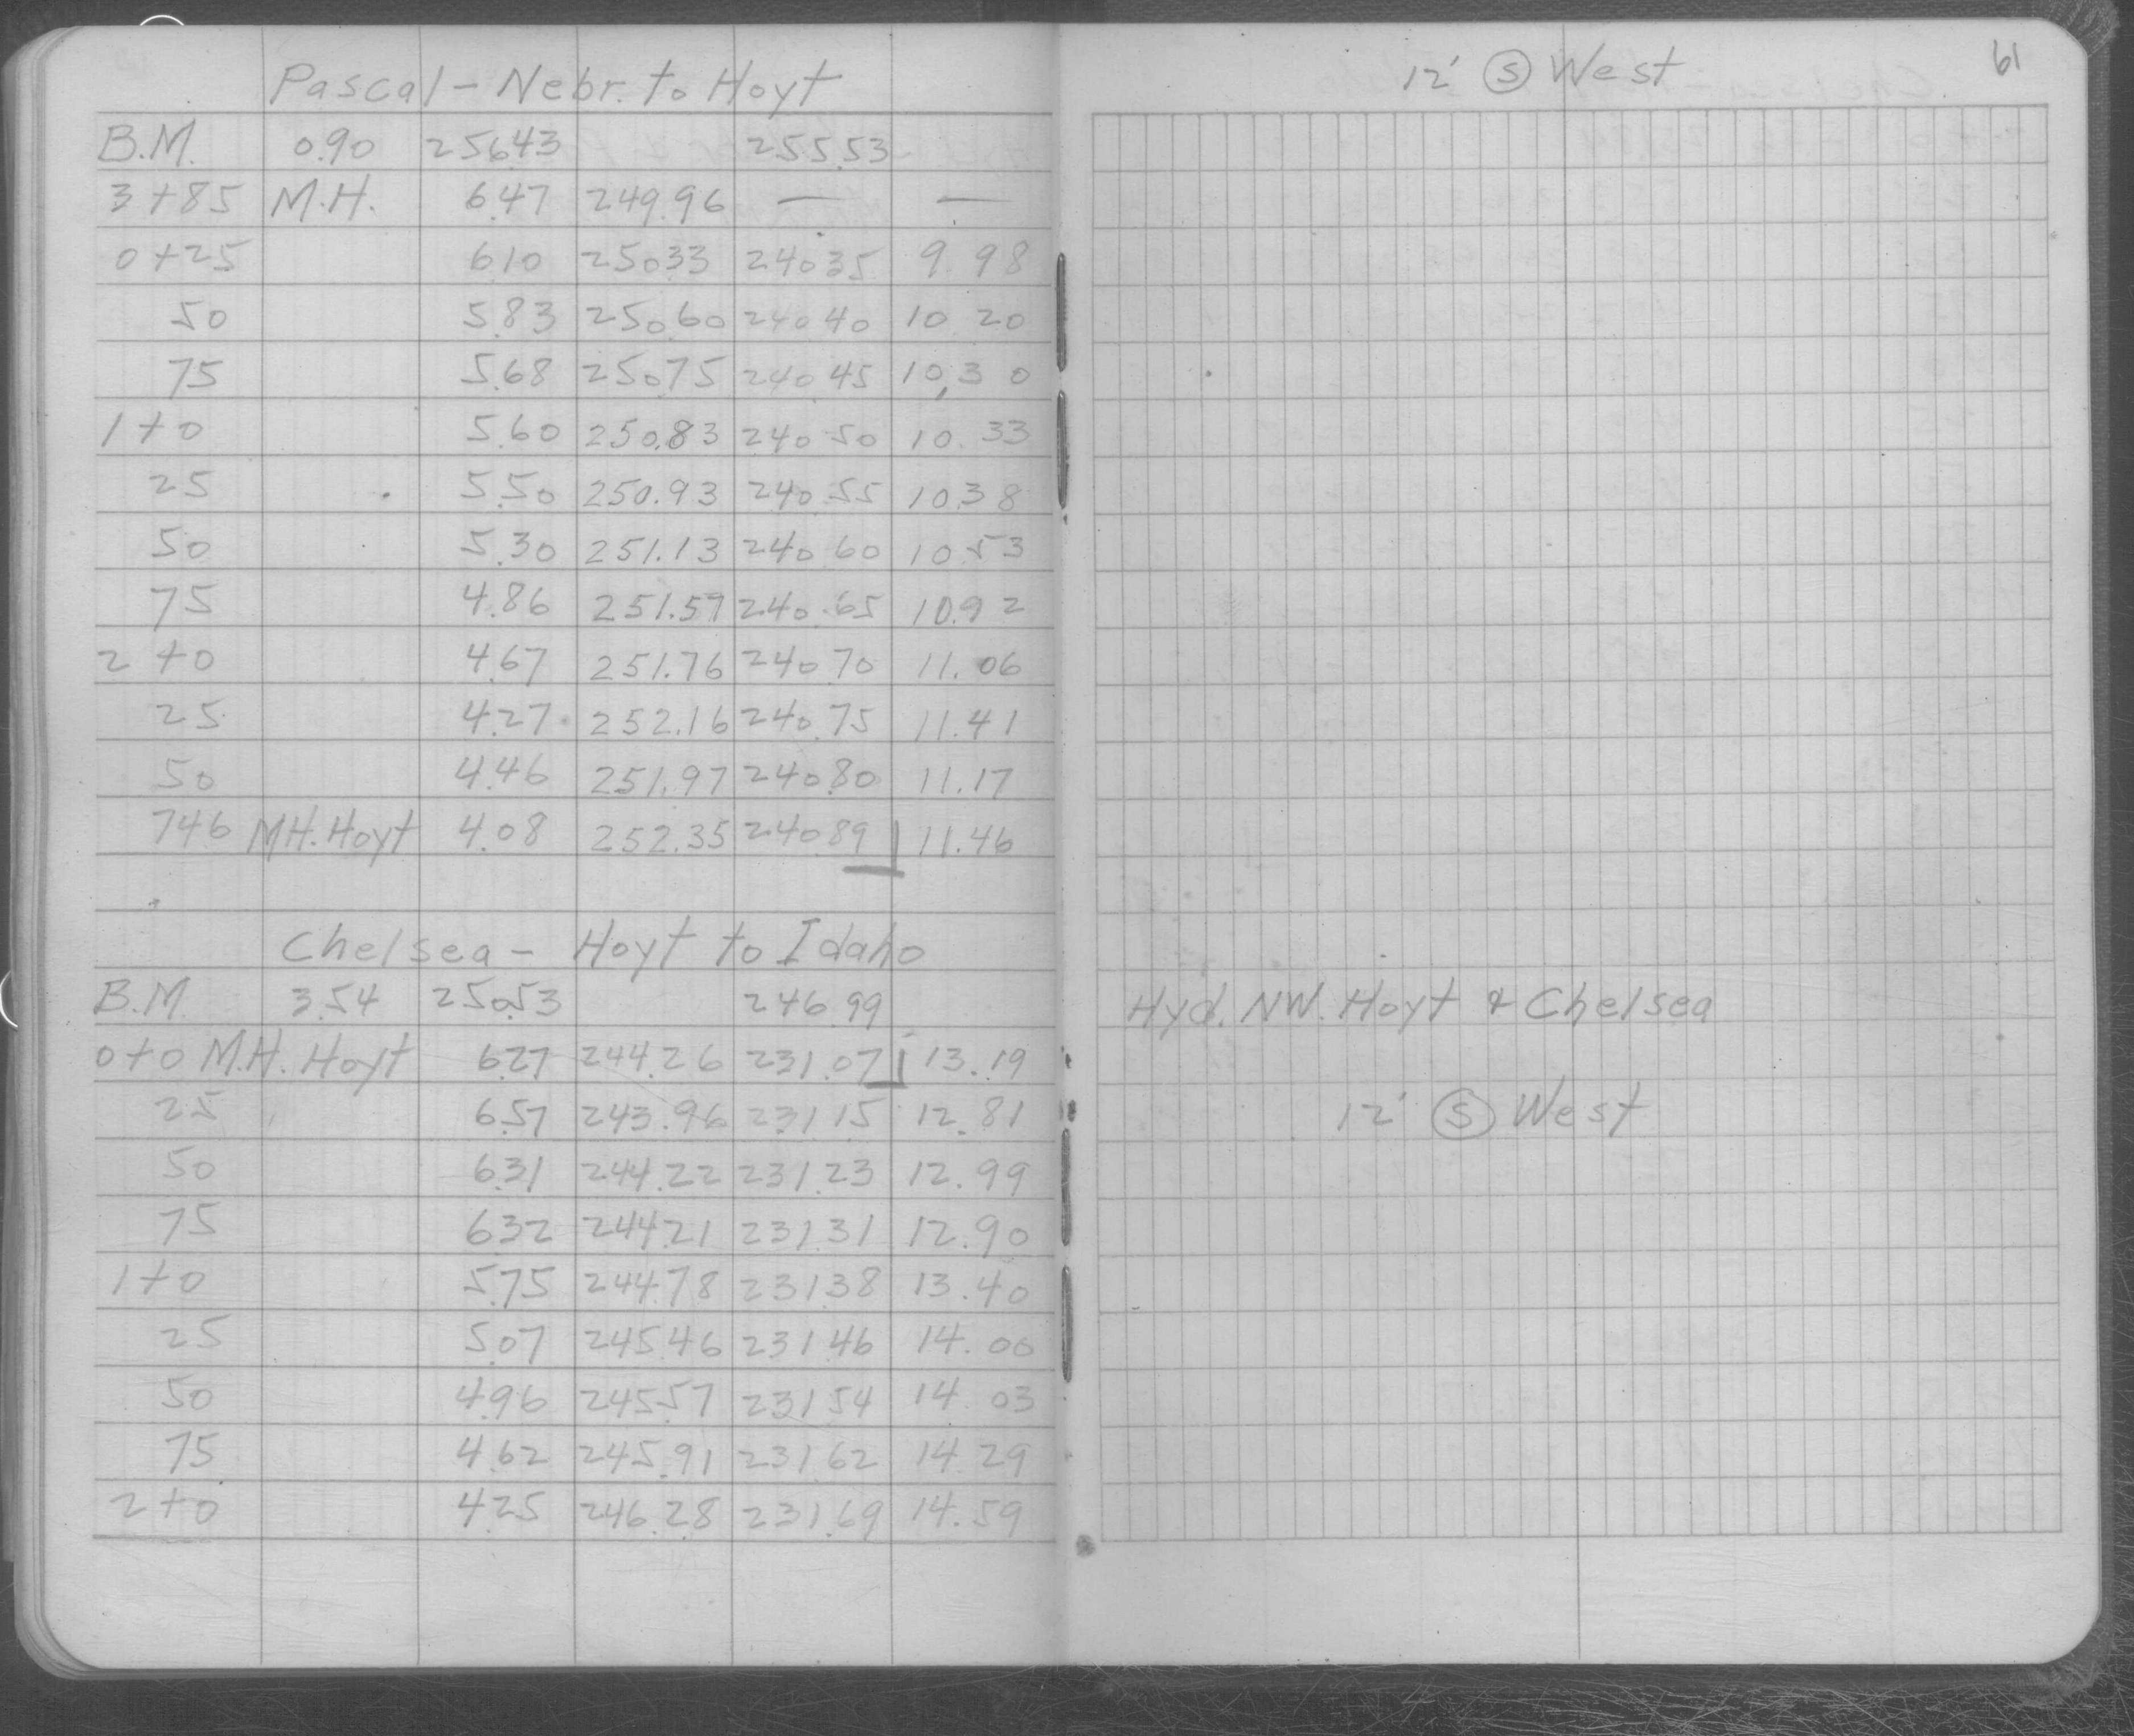 Pascal - Nebr. to Hoyt
B.M. 0.90 256.43 255.53
3+85 M.H. 6.47 249.96 — —
0+25 6.10 250.33 240.35 9.98
50 5.83 250.60 240.40 10.20
75 5.68 250.75 240.45 10.30
1+0 5.60 250.83 240.50 10.33
25 5.50 250.93 240.55 10.38
50 5.30 251.13 240.60 10.53
75 4.86 251.57 240.65 10.92
2+0 4.67 251.76 240.70 11.06
25 4.27 252.16 240.75 11.41
50 4.46 251.97 240.80 11.17
746 MH. Hoyt 4.08 252.35 240.89 11.46
Chelsea - Hoyt to Idaho
B.M. 3.54 250.53 246.99
0+0 M.H. Hoyt 6.27 244.26 231.07 13.19
25 6.57 243.96 231.15 12.81
50 6.31 244.22 231.23 12.99
75 6.32 244.21 231.31 12.90
1+0 5.75 244.78 231.38 13.40
25 5.07 245.46 231.46 14.00
50 4.96 245.57 231.54 14.03
75 4.62 245.91 231.62 14.29
2+0 4.25 246.28 231.69 14.59
12' Ⓢ West
61
Hyd. NW. Hoyt & Chelsea
12' Ⓢ West